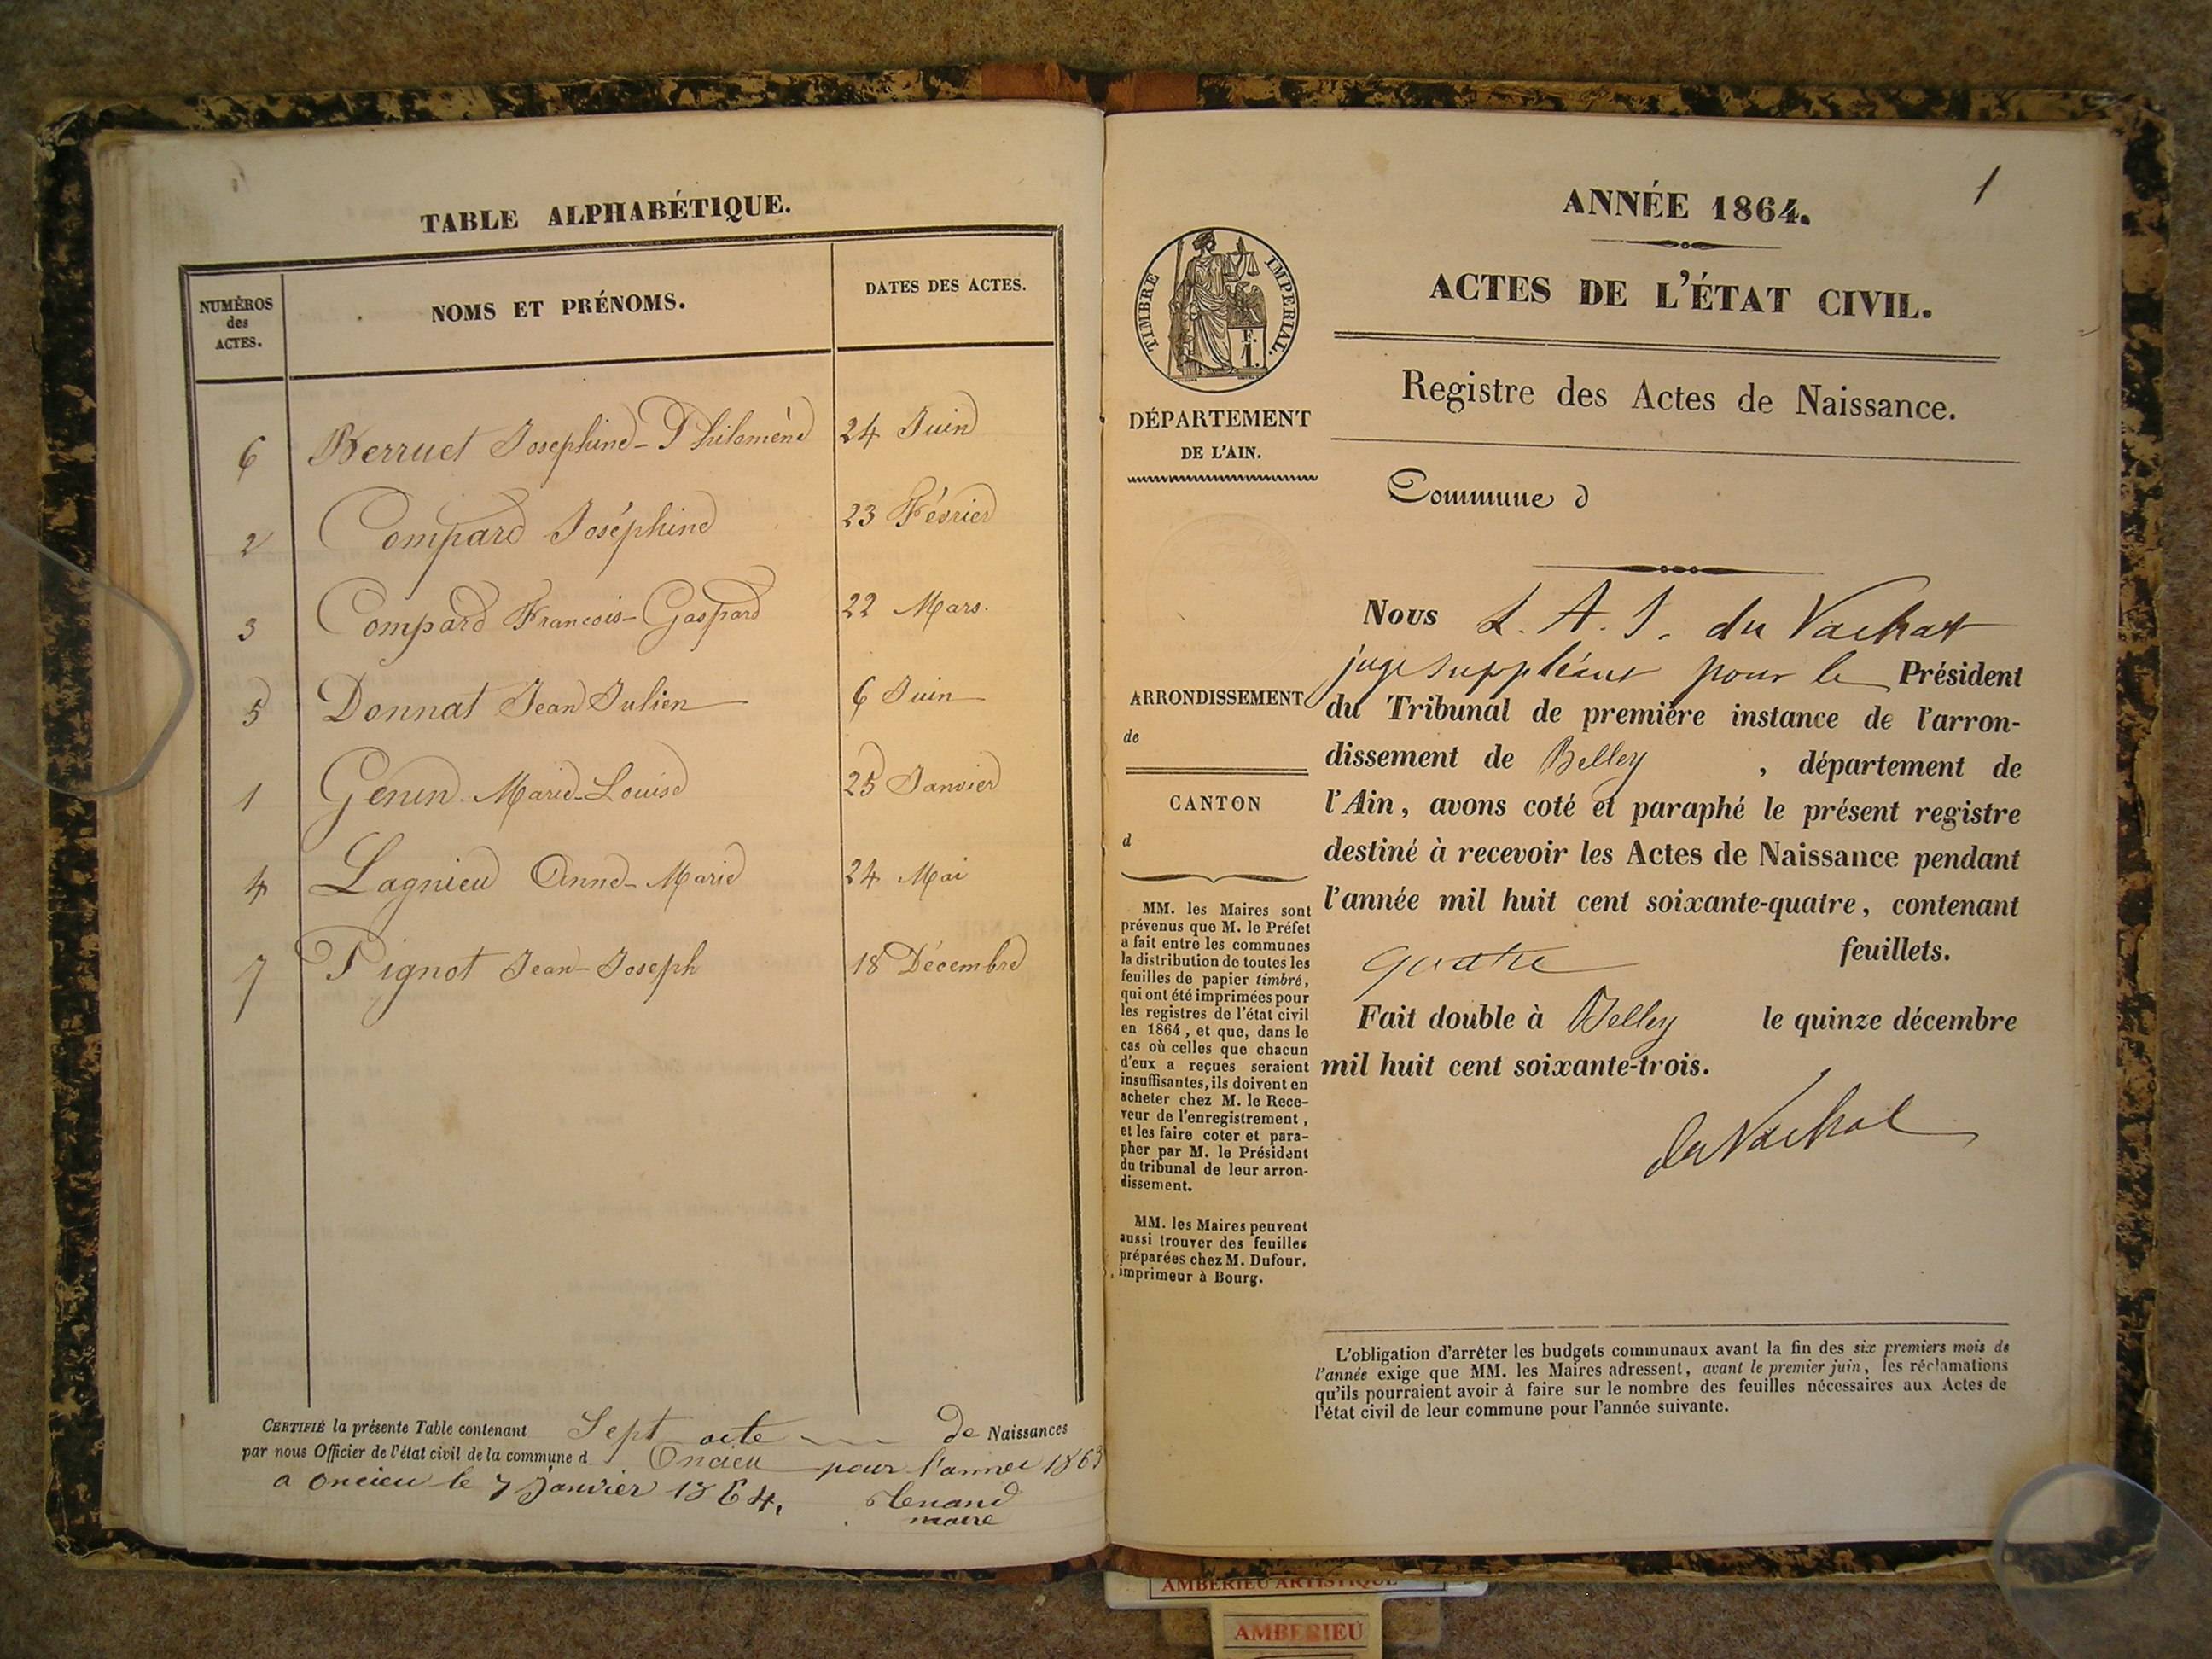 TABLE ALPHABÉTIQUE.
NUMÉROS
des
ACTES.
NOMS ET PRÉNOMS.
DATES DES ACTES.
6 Berruet Josephine-Philomène 24 Juin
2 Compard Joséphine 23 Février
3 Compard Francois-Gaspard 22 Mars.
5 Donnat Jean Julien 6 Juin
1 Genin Marie-Louise 25 Janvier
4 Lagnieu Anne-Marie 24 Mai
7 Pignot Jean-Joseph 18 Décembre
CERTIFIÉ la présente Table contenant Sept acte de Naissances
par nous Officier de l'état civil de la commune d Oncieu pour l'année 1863
a oncieu le 7 Janvier 1864.
maire
1
ANNÉE 1864.
ACTES DE L'ÉTAT CIVIL.
Registre des Actes de Naissance.
Commune d
TIMBRE IMPERIAL.
F.
1.
DÉPARTEMENT
DE L'AIN.
ARRONDISSEMENT
de
CANTON
d
MM. les Maires sont
prévenus que M. le Préfet
a fait entre les communes
la distribution de toutes les
feuilles de papier timbré,
qui ont été imprimées pour
les registres de l'état civil
en 1864, et que, dans le
cas où celles que chacun
d'eux a reçues seraient
insuffisantes, ils doivent en
acheter chez M. le Rece-
veur de l'enregistrement,
et les faire coter et para-
pher par M. le Président
du tribunal de leur arron-
dissement.
MM. les Maires peuvent
aussi trouver des feuilles
préparées chez M. Dufour,
imprimeur à Bourg.
Nous L. A. J. du Vachat
juge suppléant pour le Président
du Tribunal de première instance de l'arron-
dissement de Belley, département de
l'Ain, avons coté et paraphé le présent registre
destiné à recevoir les Actes de Naissance pendant
l'année mil huit cent soixante-quatre, contenant
quatre feuillets.
Fait double à Belley le quinze décembre
mil huit cent soixante-trois.
du Vachat
L'obligation d'arrêter les budgets communaux avant la fin des six premiers mois de
l'année exige que MM. les Maires adressent, avant le premier juin, les réclamations
qu'ils pourraient avoir à faire sur le nombre des feuilles nécessaires aux Actes de
l'état civil de leur commune pour l'année suivante.
AMBERIEU ARTISTIQUE
AMBERIEU